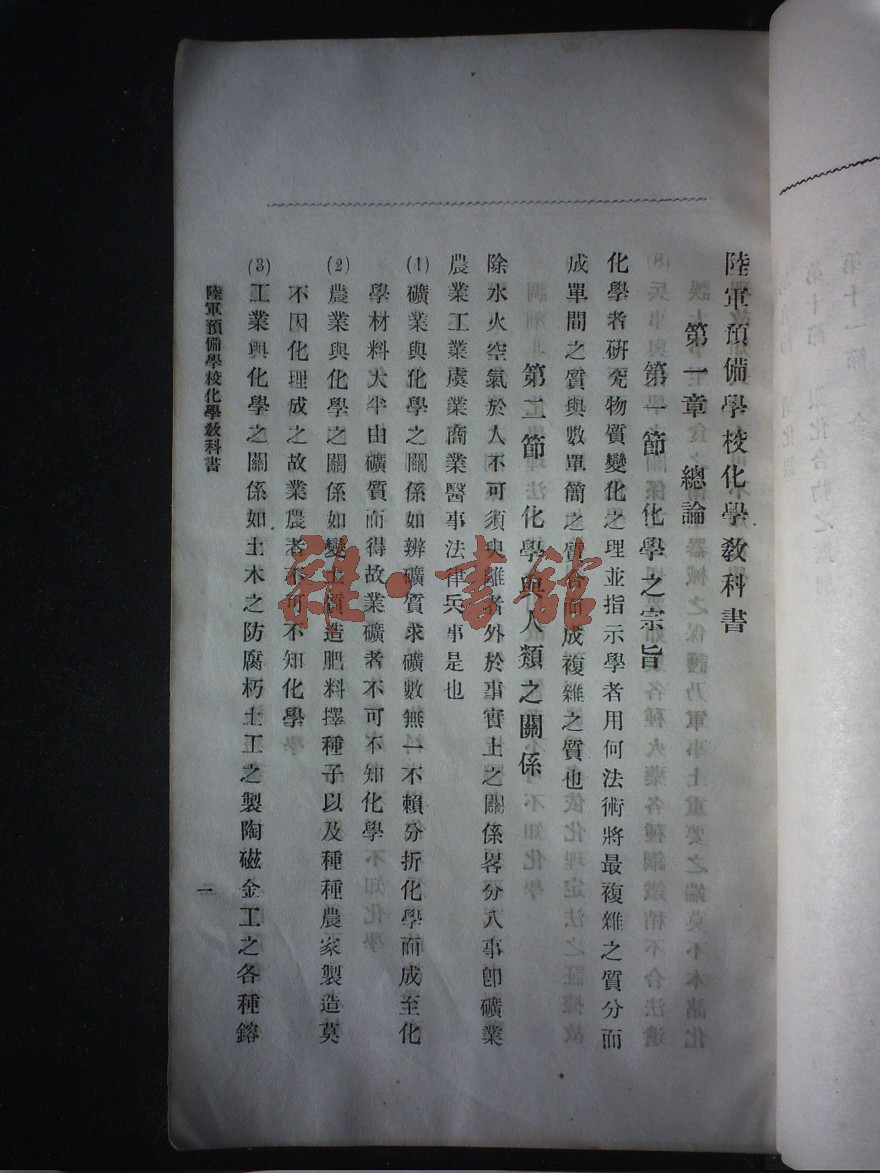 陸軍預備學校化學教科書
第一章 總論
第一節 化學之宗旨
化學者研究物質變化之理並指示學者用何法術將最複雜之質分而
成單間之質與數單簡之質合而成複雜之質也
第二節 化學與人類之關係
除水火空氣於人不可須臾離者外於事實上之關係畧分八事卽礦業
農業工業虞業商業醫事法律兵事是也
(1) 礦業與化學之關係如辨礦質求礦數無一不賴分折化學而成至化
學材料大半由礦質而得故業礦者不可不知化學
(2) 農業與化學之關係如變土質造肥料擇種子以及種種農家製造莫
不因化理成之故業農者不可不知化學
(3) 工業與化學之關係如土木之防腐朽土工之製陶磁金工之各種鎔
陸軍預備學校化學教科書
一
雜·書館